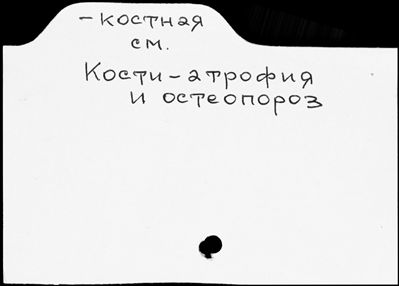 -костная
см.
Кости-атрофия
и остеопороз